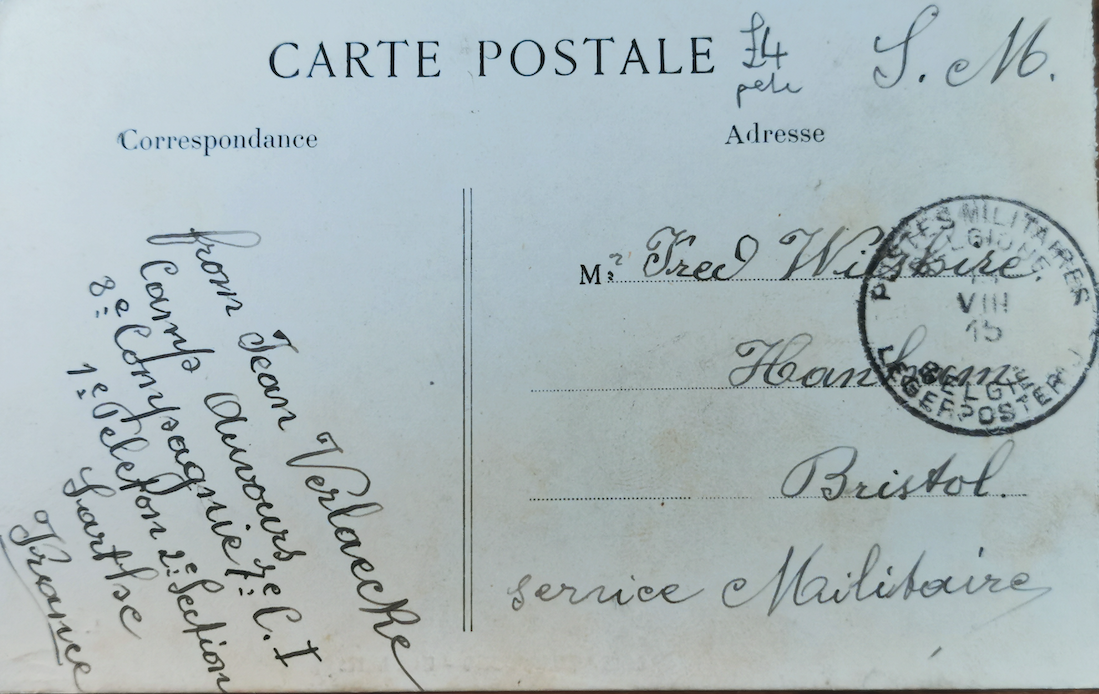 CARTE POSTALE
£4
S. M.
Correspondance
Adresse
from Jean Verlaecke
Camp Auvours 7e C. I
8e Compagnie
1e Peleton 2e Section
Sarthe
France
Mr Fred Wiltshire,
Hanham
Bristol.
service Militaire
POSTES MILITAIRES
BELGIQUE
VIII
15
BELGIË
LEGERPOSTERIJ